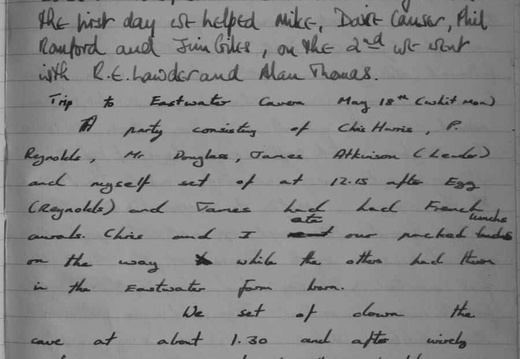 the first day we helped Mike, Dave Causer, Phil
Romford and Jim Giles, on the 2nd we went
with R.E. Lawder and Alan Thomas.
Trip to Eastwater Cavern May 18th (whit mon)
A party consisting of Chis Harris, P.
Reynolds, Mr Douglass, James Atkinson (Leader)
and myself set of at 12.15 after Egg
(Reynolds) and James had had French
Chris and I ate our packed lunches
on the way while the others had them
in the Eastwater farm barn.
We set of down the
cave at about 1.30 and after